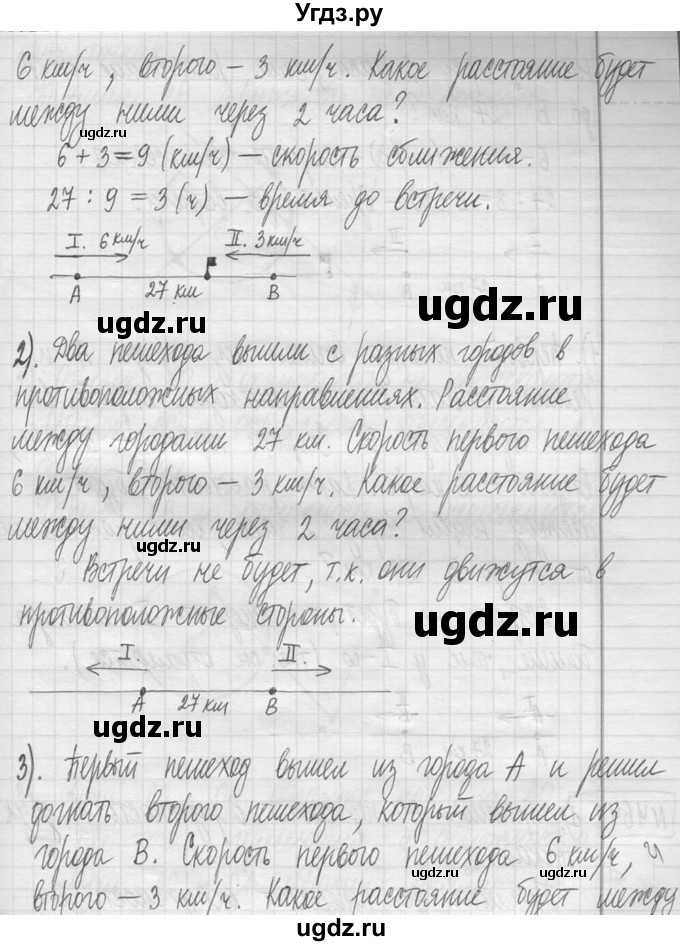 Угдз.ру
6 км/ч, второго – 3 км/ч. Какое расстояние будет
между ними через 2 часа?
ugdz.ru
ugdz.ru
6 + 3 = 9 (км/ч) – скорость сближения.
27 : 9 = 3 (ч) – время до встречи.
I. 6 км/ч II. 3 км/ч
A 27 км B
ugdz.ru
ugdz.ru
2). Два пешехода вышли с разных городов в
противоположных направлениях. Расстояние
между городами 27 км. Скорость первого пешехода
6 км/ч, второго – 3 км/ч. Какое расстояние будет
между ними через 2 часа?
ugdz.ru
Встречи не будет, т.к. они движутся в
противоположные стороны.
ugdz.ru
I. II.
A 27 км B
ugdz.ru
3). Первый пешеход вышел из города А и решил
догнать второго пешехода, который вышел из
ugdz.ru
города В. Скорость первого пешехода 6 км/ч, и
второго – 3 км/ч. Какое расстояние будет между
ugdz.ru
ugdz.ru